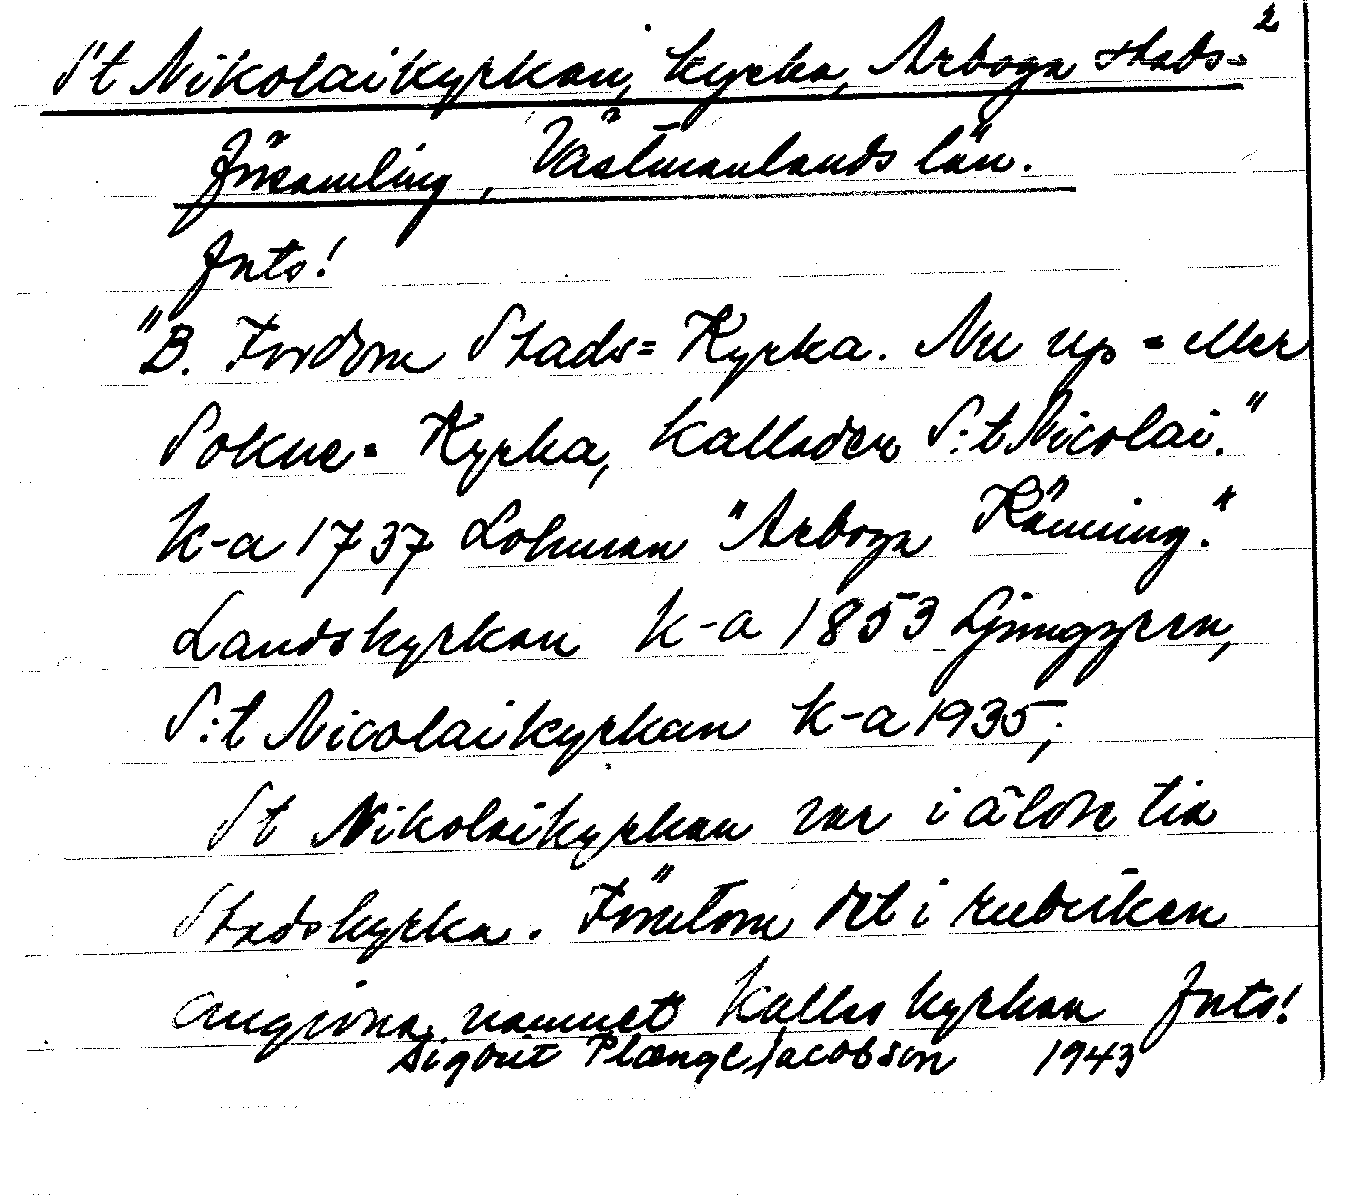 2
St Nikolaikyrkan, kyrka, Arboga stads-
församling, Västmanlands län.
Jnto!
"B. Fordom Stads= Kyrka. Nu up = eller
Sokne= Kyrka, kallader S:t Nicolai."
k-a 1737 Lohman "Arboga Känning."
Landskyrkan k-a 1853 Ljunggren,
S:t Nicolaikyrkan k-a 1935;
St Nikolaikyrkan var i äldre tid
Stadskyrka. Förutom det i rubriken
angivna namnet kallas kyrkan Jnto!
Sigbrit Plænge Jacobson 1943